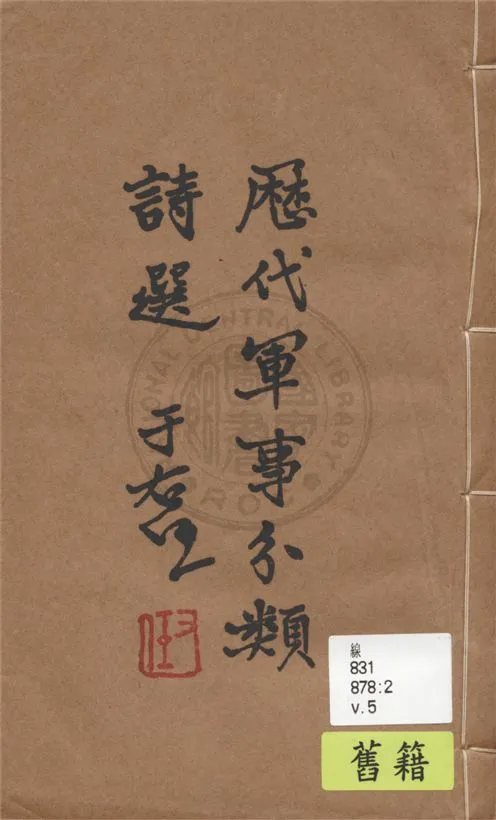 歷代軍事分類
詩選 于右任
NATIONAL CENTRAL LIBRARY
線
831
878:2
v.5
舊籍